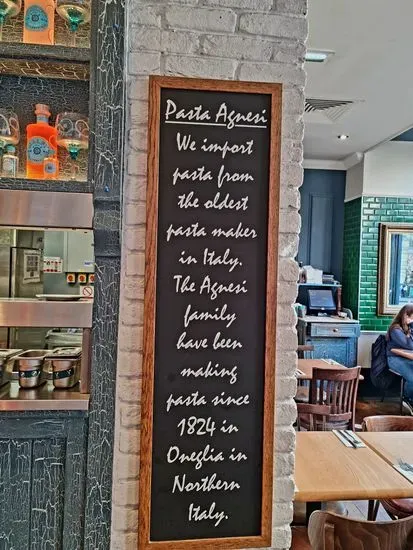 Pasta Agnesi
We import
pasta from
the oldest
pasta maker
in Italy.
The Agnesi
family
have been
making
pasta since
1824 in
Oneglia in
Northern
Italy.